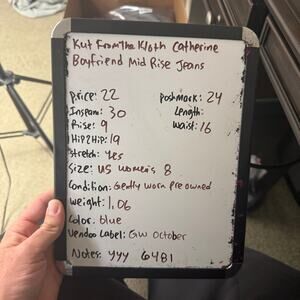 Kut From The Kloth Catherine
Boyfriend Mid Rise Jeans
Price: 22
Poshmark: 24
Inseam: 30
Length:
Rise: 9
Waist: 16
Hip 2 Hip: 19
Stretch: Yes
Size: US Women's 8
Condition: Gently worn Pre owned
Weight: 1.06
Color: blue
Vendoo Label: GW October
Notes: yyy 6481